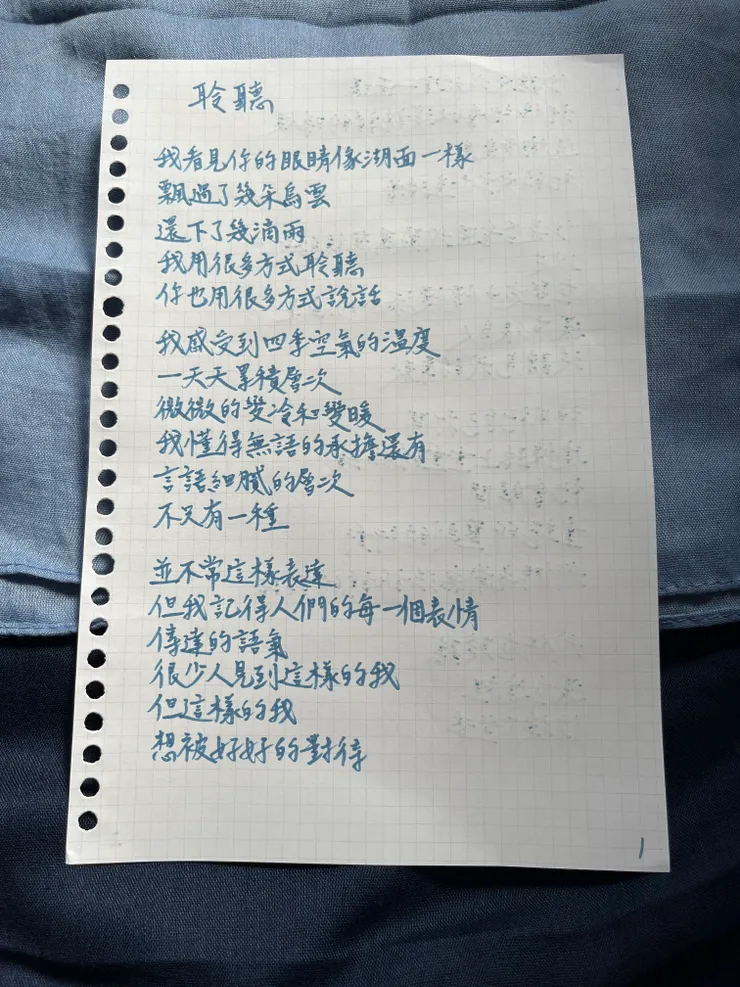 聆聽
我看見你的眼睛像湖面一樣
飄過了幾朵烏雲
還下了幾滴雨
我用很多方式聆聽
你也用很多方式說話
我感受到四季空氣的溫度
一天天累積層次
微微的變冷和變暖
我懂得無語的承擔還有
言語細膩的層次
不只有一種
並不常這樣表達
但我記得人們的每一個表情
傳達的語氣
很少人見到這樣的我
但這樣的我
想被好好的對待
1